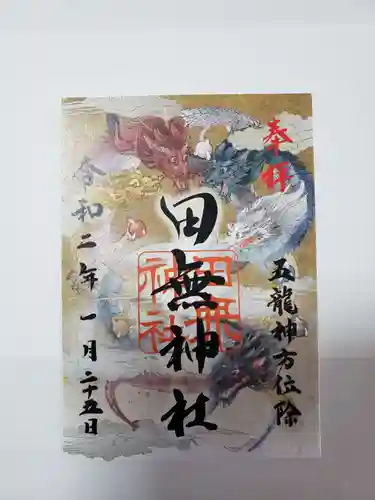 奉拝
五龍神方位除
田無神社
田無
神社
令和二年一月二十五日